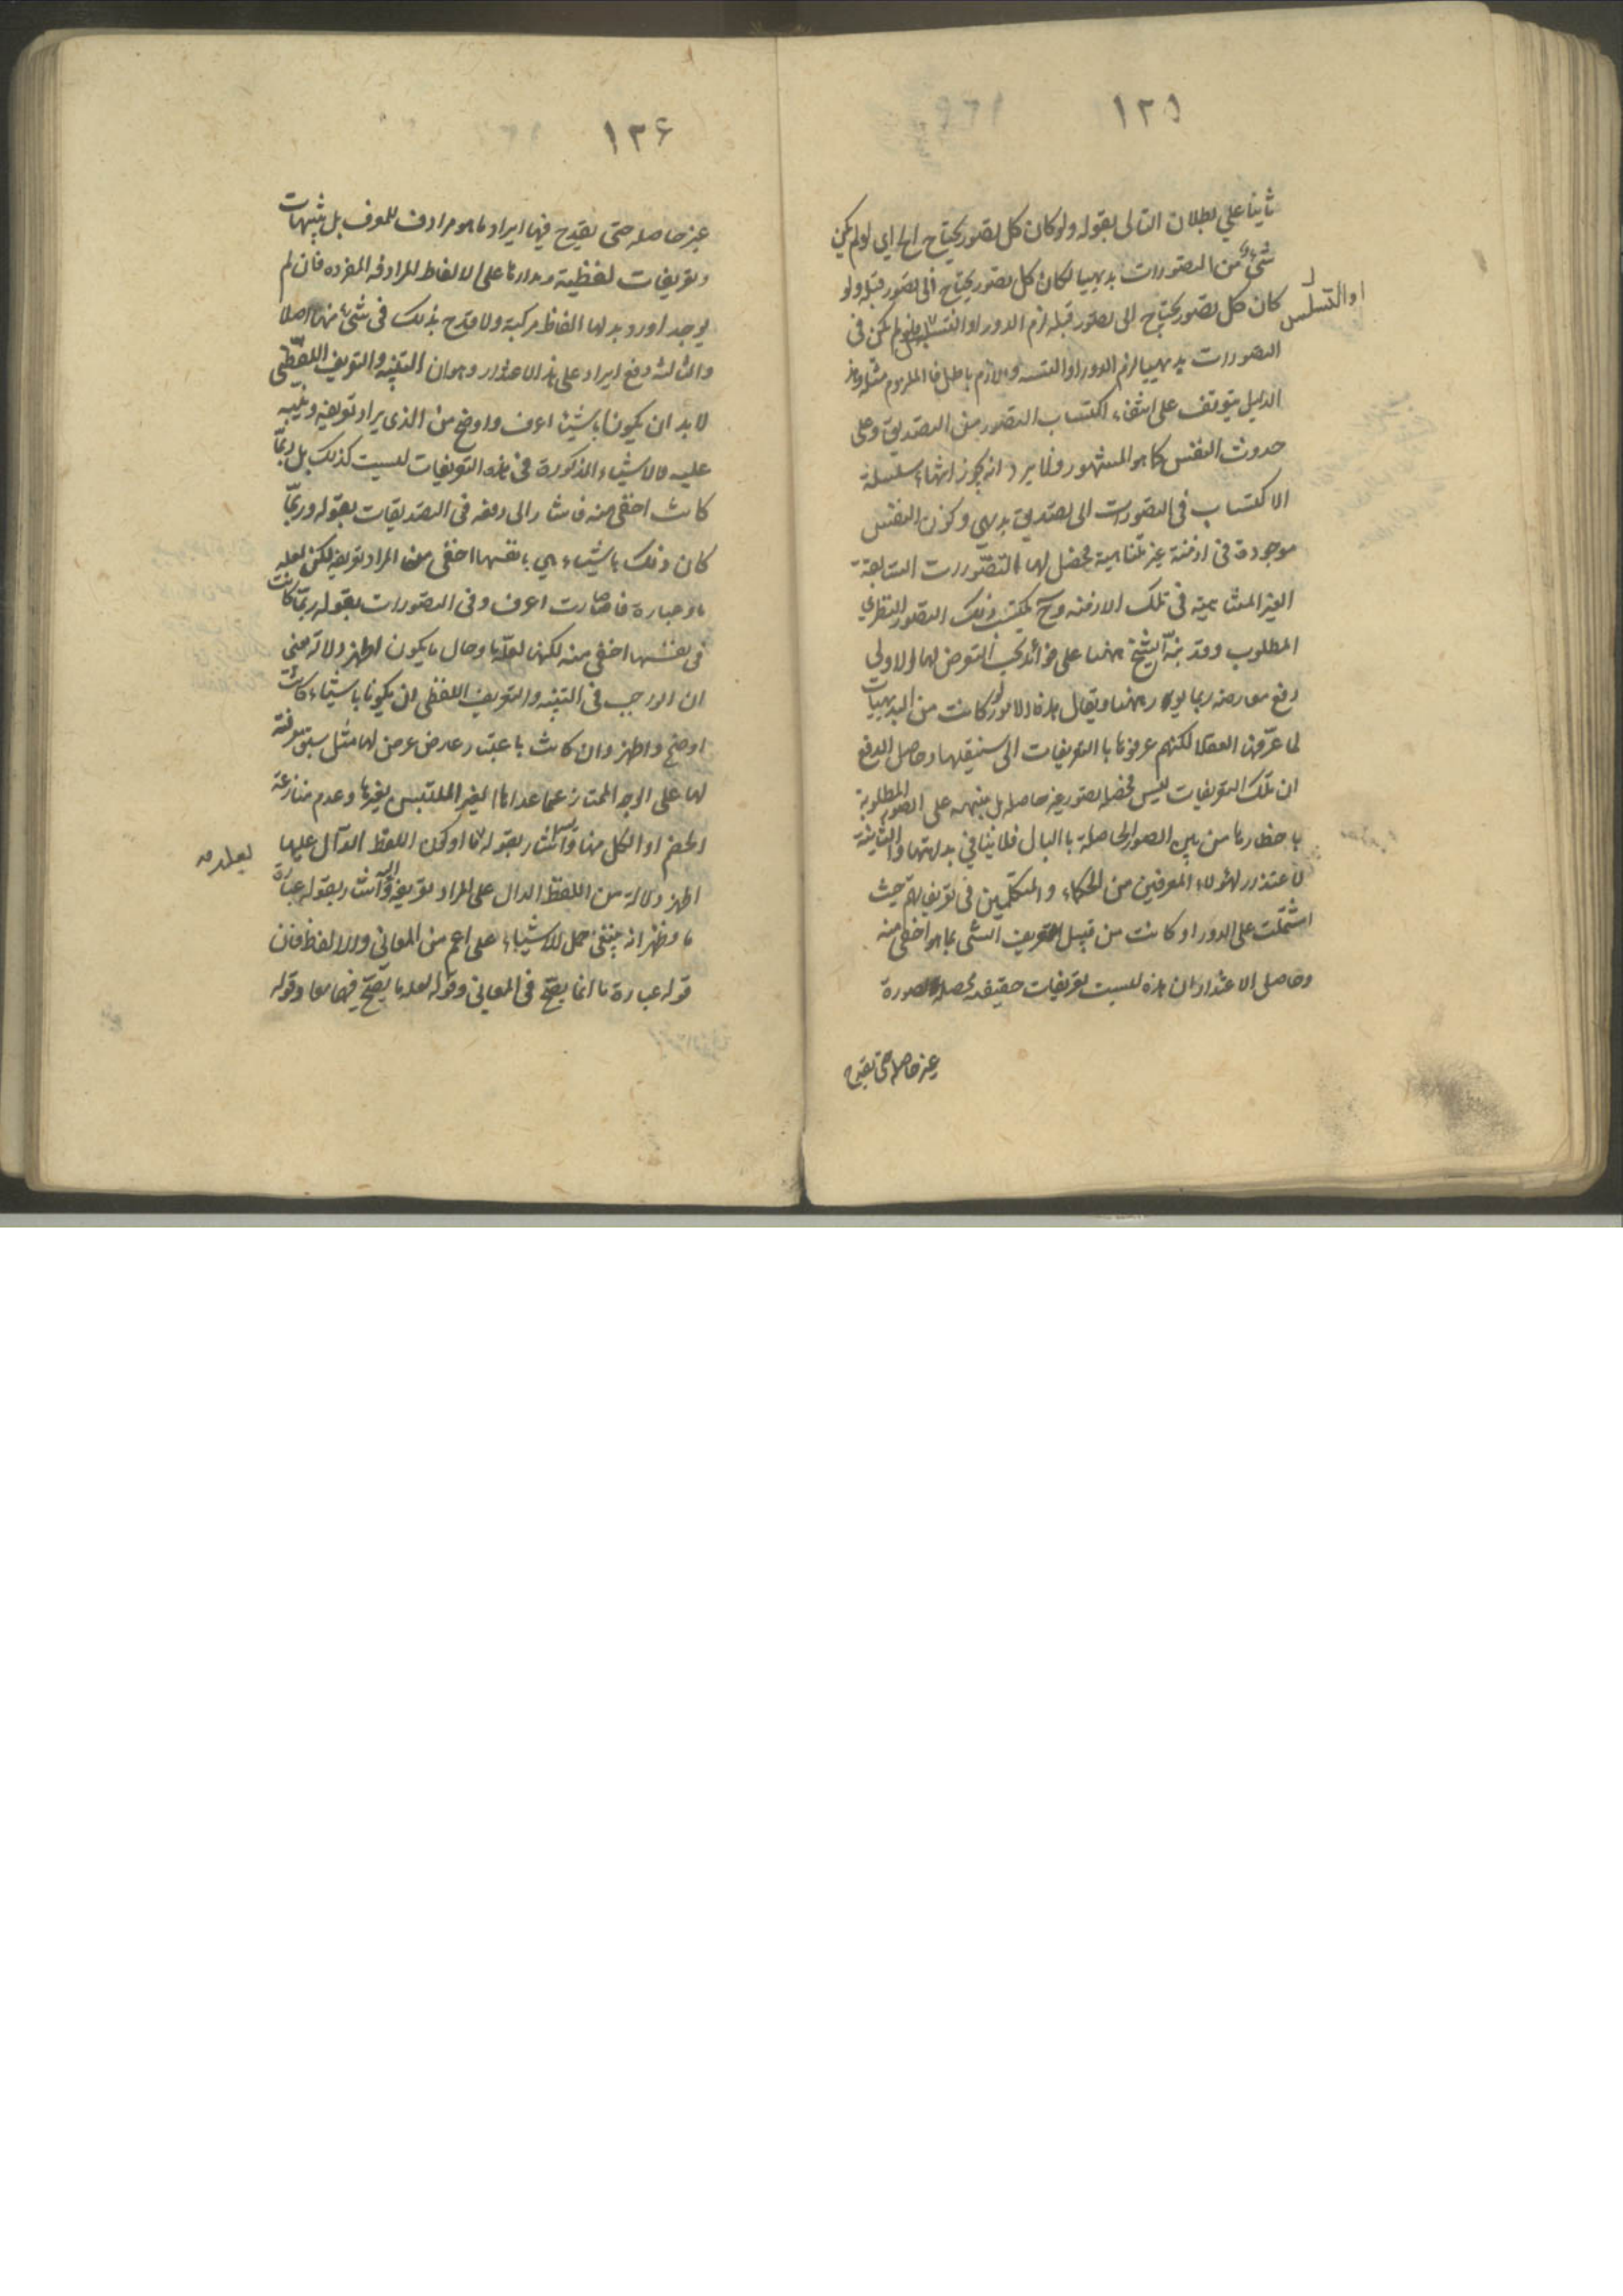 ١٢٥
ثانيا على بطلان التالى بقوله ولو كان كل تصور يحتاج الخ اي لو لم يكن
شئ من التصورات بديهيا لكان كل تصور يحتاج الى تصور قبله ولو
كان كل تصور يحتاج الى تصور قبله لزم الدور او التسلسل فلو لم يكن فى
او التسلسل
التصورات بديهيا لزم الدور او التسلسل واللازم باطل فالملزوم مثله وهذا
الدليل يتوقف على انتفاء اكتساب التصور من التصديق وعلى
حدوث النفس كما هو المشهور فلا يرد انه يجوز انتهاء سلسلة
الاكتساب فى التصورات الى تصديق بديهي وكون النفس
موجودة فى ازمنة غير متناهية تحصل لها التصورات السابقة
الغير المتناهية فى تلك الازمنة وح يكتسب ذلك التصور النظري
المطلوب وقد نبّه الشيخ ههنا على فوائد يجب التعرض لها الاولى
دفع معارضة ربما يورد ههنا ويقال هذه الامور لو كانت من البديهيات
لما عرّفها العقلا لكنهم عرفوها با التعريفات التى سينقلها وحاصل الدفع
ان تلك التعريفات ليس تحصيلا لصور غير حاصلة بل منبهة على الصور المطلوبة
باحظارها من بين الصور الحاصلة با البال فلا ينافي بداهتها والثانية
الاعتذار لهؤلاء المعرفين من الحكماء والمتكلمين فى تعريفاتهم حيث
اشتملت على الدور او كانت من قبيل تعريف الشى بما هو اخفى منه
وحاصل الاعتذار ان هذه ليست تعريفات حقيقية محصلة لصورة
غير حاصلة حتى يقدح
١٢٦
غير حاصله حتى يقدح فيها ايراد ما هو مرادف للمعرف بل تنبيهات
وتعريفات لفظية ومدارها على الالفاظ المرادفه المفرده فان لم
يوجد اورد بدلها الفاظ مركبة ولا قدح بذلك فى شئ منها اصلا
والثالثه دفع ايراد على هذا الاعتذار وهو ان التنبيه والتعريف اللفظى
لا بد ان يكونا باشياء اعرف واوضح من الذى يراد تعريفه وتنبيه
عليه والاشياء المذكورة فى هذه التعريفات ليست كذلك بل ربما
كانت اخفى منه فاشار الى دفعه فى التصديقات بقوله وربّما
كان ذلك باشياء هي بانفسها اخفى من المراد تعريفه لكن لعله
ما وعبارة ما صارت اعرف وفى التصورات بقوله ربّما كانت
فى نفسها اخفى منه لكنها لعلة ما وحال ما يكون اظهر دلالة يعنى
ان الواجب فى التنبيه والتعريف اللفظى ان يكونا باشياء كانت
اوضح واظهر وان كانت باعتبار عارض عرض لها مثل سبق معرفة
لها على الوجه الممتاز عما عداها الغير الملتبس بغيرها وعدم منازعة
الخصم او الكل منها واشار بقوله لعلة ما او كون اللفظ الدآل عليها
لعلة مه
اظهر دلالة من اللفظ الدال على المراد تعريفه واليه اشار بقوله عبارة
ما وظهر انه ينبغى حمل الاشياء على اعم من المعانى والالفاظ فان
قوله عبارة ما انما يصحّ فى المعاني وقوله لعلة ما يصحّ فيهما معا وقوله